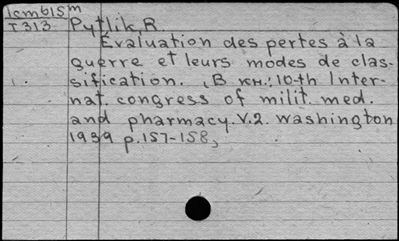 1cm615m
T313 Pytlik, R.
Évaluation des pertes à la
guerre et leurs modes de clas-
sification. (В кн.: 10-th Inter-
nat. congress of milit. med.
and pharmacy. V.2. Washington
1939 p.157-158,